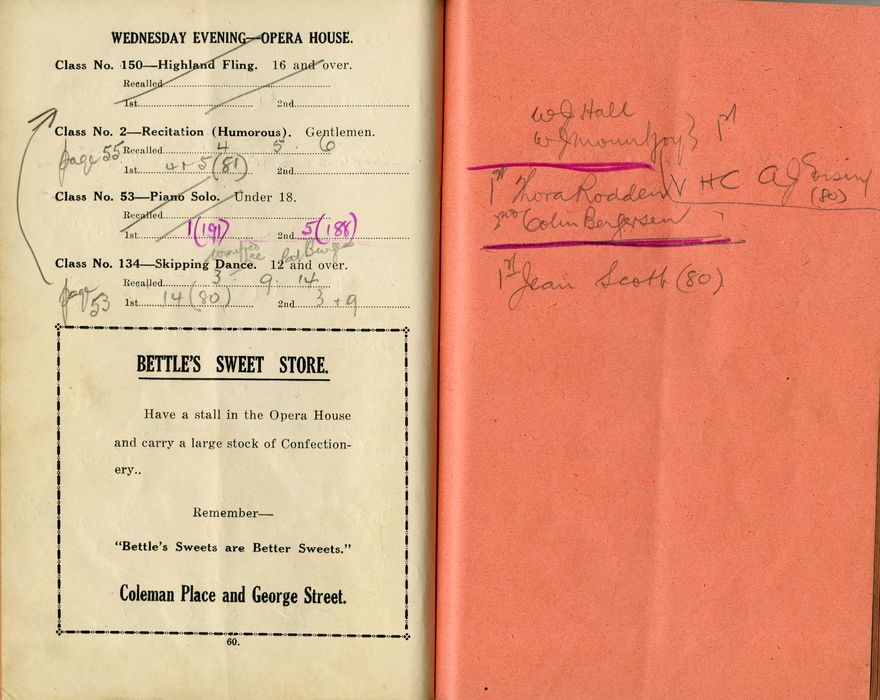 WEDNESDAY EVENING—OPERA HOUSE.
Class No. 150—Highland Fling. 16 and over.
Recalled
1st. 2nd.
Class No. 2—Recitation (Humorous). Gentlemen.
page 55 Recalled 4 5 6
1st. 4 + 5 (81) 2nd.
Class No. 53—Piano Solo. Under 18.
Recalled
1st. 1 (191) 2nd. 5 (188)
Class No. 134—Skipping Dance. 12 and over.
page 53 Recalled 3 9 14
1st. 14 (80) 2nd. 3 + 9
BETTLE'S SWEET STORE.
Have a stall in the Opera House
and carry a large stock of Confection-
ery..
Remember—
"Bettle's Sweets are Better Sweets."
Coleman Place and George Street.
60.
W J Hall
W J Mountjoy } 1st
1st Thora Rodden V HC A J (80)
2nd Colin Bergersen
1st Jean Scott (80)